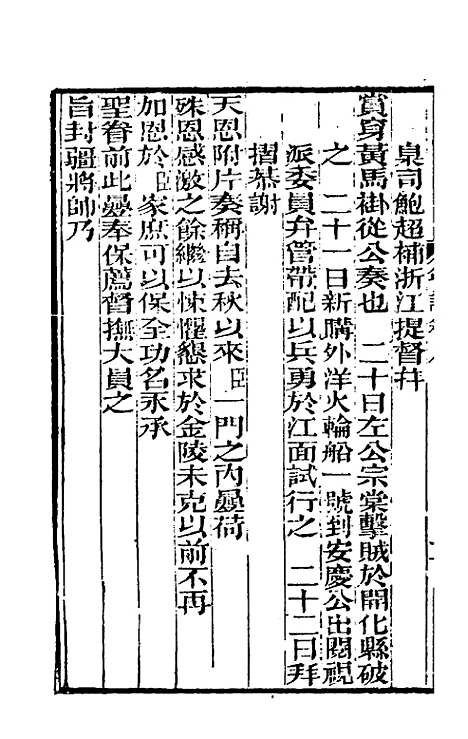 臬司鮑超補浙江提督幷
賞穿黃馬褂從公奏也　二十日左公宗棠擊賊於開化縣破
之　二十一日新購外洋火輪船一號到安慶公出閱視
派委員弁管帶配以兵勇於江面試行之　二十二日拜
摺恭謝
天恩附片奏稱自去秋以來臣一門之內疊荷
殊恩感激之餘繼以悚懼懇求於金陵未克以前不再
加恩於臣家庶可以保全功名永承
聖眷前此疊奉保薦督撫大員之
旨封疆將帥乃